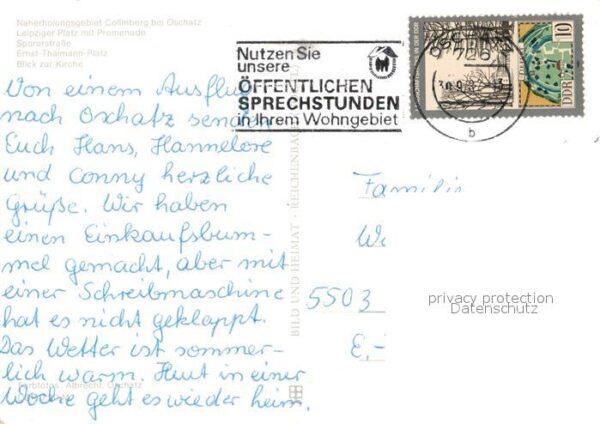 Naherholungsgebiet Collmberg bei Oschatz
Leipziger Platz mit Promenade
Sporerstraße
Ernst-Thälmann-Platz
Blick zur Kirche
Nutzen Sie
unsere
ÖFFENTLICHEN
SPRECHSTUNDEN
in Ihrem Wohngebiet
b
10
DDR
Von einem Ausflug
nach Oschatz senden
Euch Hans, Hannelore
und Conny herzliche
Grüße. Wir haben
einen Einkaufsbum-
mel gemacht, aber mit
einer Schreibmaschine
hat es nicht geklappt.
Das Wetter ist sommer-
lich warm. Heut in einer
Woche geht es wieder heim.
Farbfotos: Albrecht, Oschatz
BILD UND HEIMAT REICHENBACH
Familie
5503
privacy protection
Datenschutz